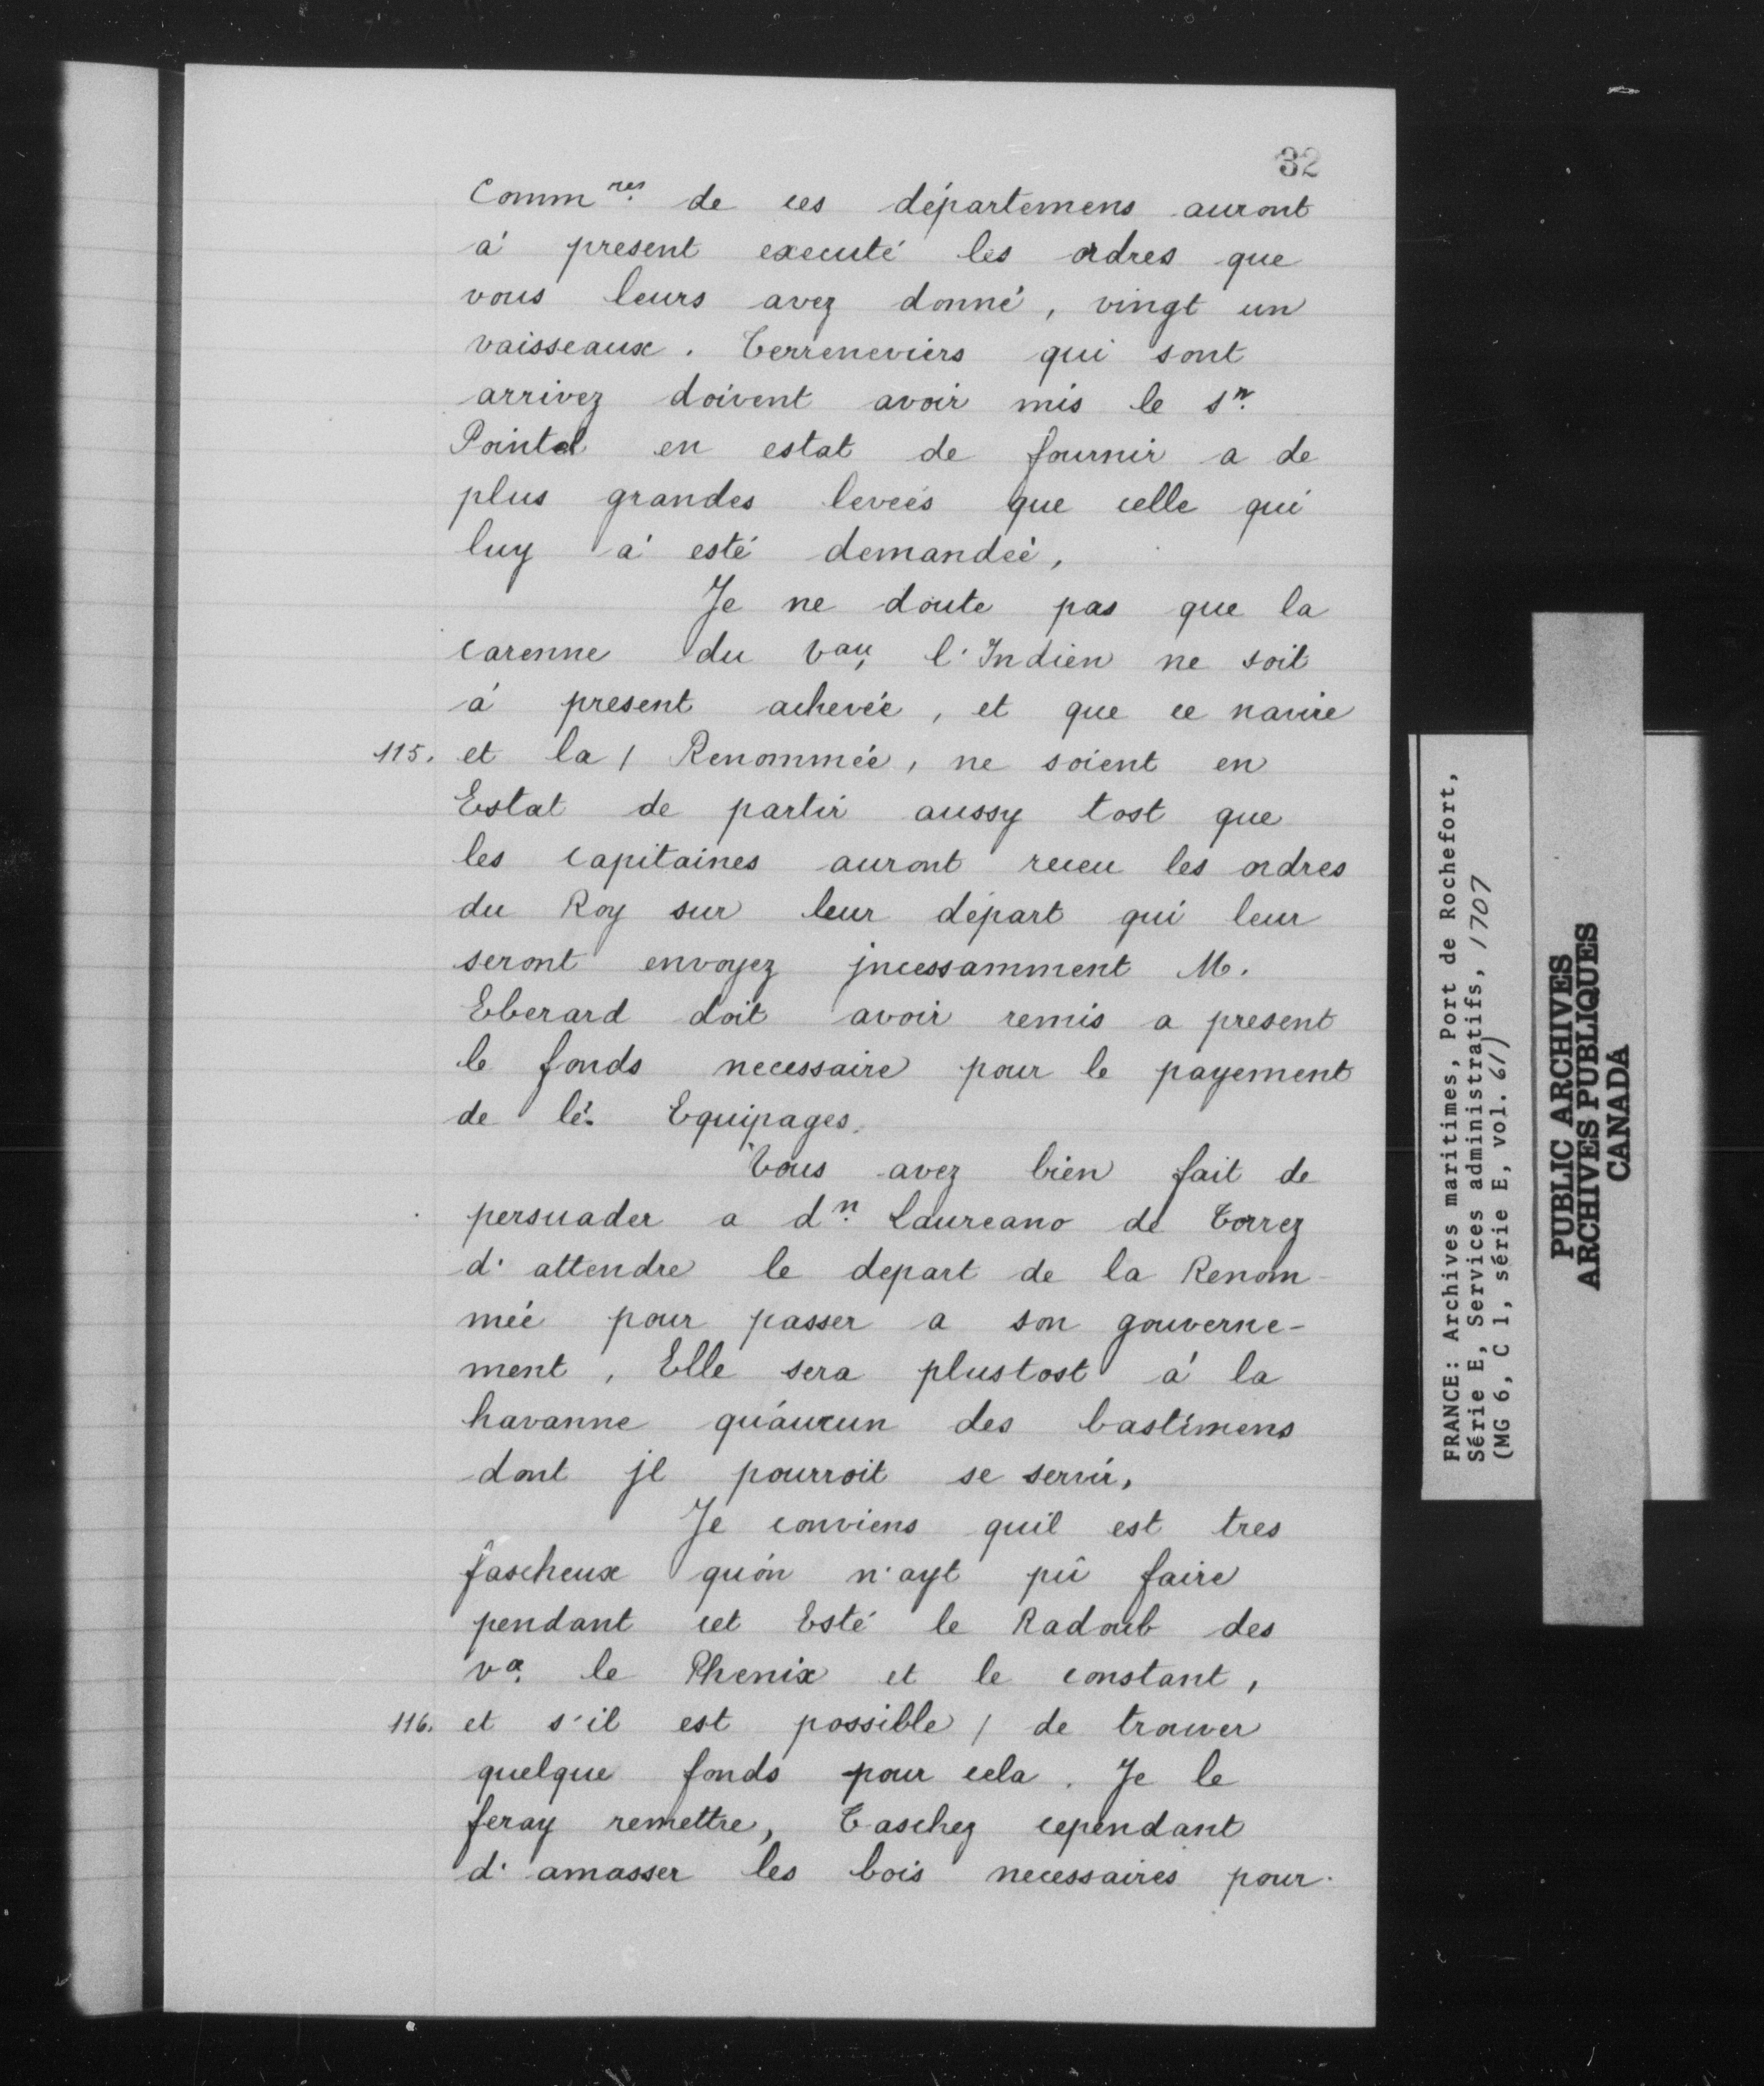 32
Comm.res de ces départemens auront
à present executé les ordres que
vous leurs avez donné, vingt un
vaisseaux. Terreneviers qui sont
arrivez doivent avoir mis le sr.
Pointel en estat de fournir a de
plus grandes leveés que celle qui
luy a' esté demandeé,
Je ne doute pas que la
carenne du Vau, l'Indien ne soit
à present acheveé, et que ce navire
115. et la / Renommeé, ne soient en
Estat de partir aussy tost que
les capitaines auront receu les ordres
du Roy sur leur départ qui leur
seront envoyez jncessamment M.
Eberard doit avoir remis a present
le fonds necessaire pour le payement
de lé. Equipages.
Vous avez bien fait de
persuader a dn. Laureano de Torrez
d'attendre le depart de la Renom-
meé pour passer a son gouverne-
ment, Elle sera plustost à la
havanne qu'aucun des bastimens
dont jl pourroit se servir,
Je conviens quil est tres
fascheux qu'on n'ayt pû faire
pendant cet Esté le Radoub des
vx. le Phenix et le constant,
116. et s'il est possible / de trouver
quelque fonds pour cela. Je le
feray remettre, Taschez cependant
d'amasser les bois necessaires pour
FRANCE: Archives maritimes, Port de Rochefort,
Série E, Services administratifs, 1707
(MG 6, C 1, série E, vol. 61)
PUBLIC ARCHIVES
ARCHIVES PUBLIQUES
CANADA